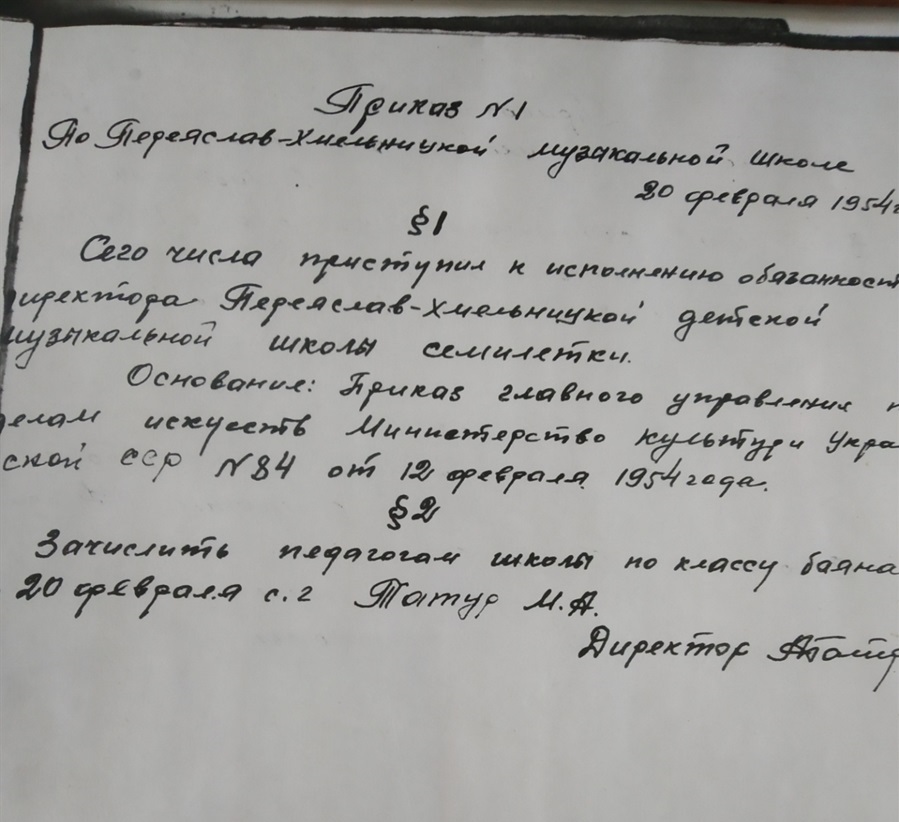 Приказ №1
По Переяслав-Хмельницкой музыкальной школе
20 февраля 1954г
§1
Сего числа приступил к исполнению обязанност
иректора Переяслав-Хмельницкой детской
музыкальной школы семилетки.
Основание: Приказ главного управления п
делам искусств Министерство культури Укра
ской ССР №84 от 12 февраля 1954 года.
§2
Зачислить педагогам школы по классу баяна
20 февраля с.г Татур М.А.
Директор